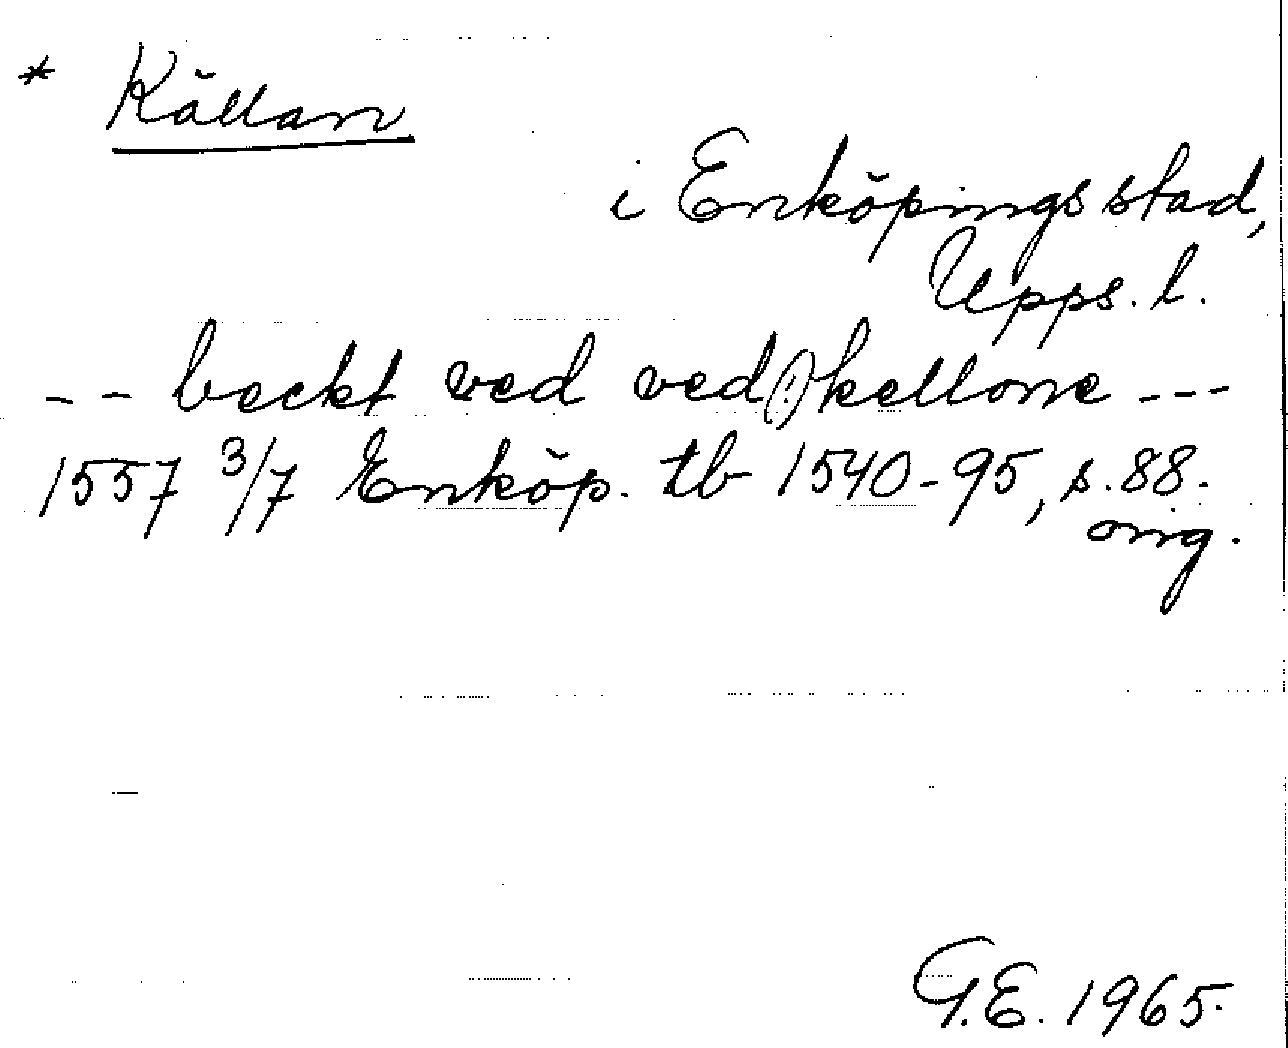 * Källan
i Enköpings stad,
Upps. l.
-- beckt ved ved(!) kellone ---
1557 3/7 Enköp. tb 1540-95, s. 88.
orig.
G.E. 1965.